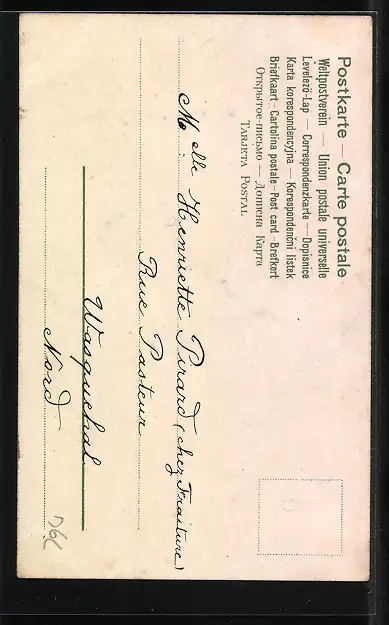 Postkarte — Carte postale
Weltpostverein — Union postale universelle
Levelező-Lap — Correspondenzkarte — Dopisnice
Karta korespondencyjna — Korespondenční lístek
Briefkaart — Cartolina postale — Post card — Brefkort
Открытое письмо — Дописна Карта
Tarjeta Postal
Melle Henriette Pirard (chez Fraiture)
Rue Pasteur
Wasquehal
Nord